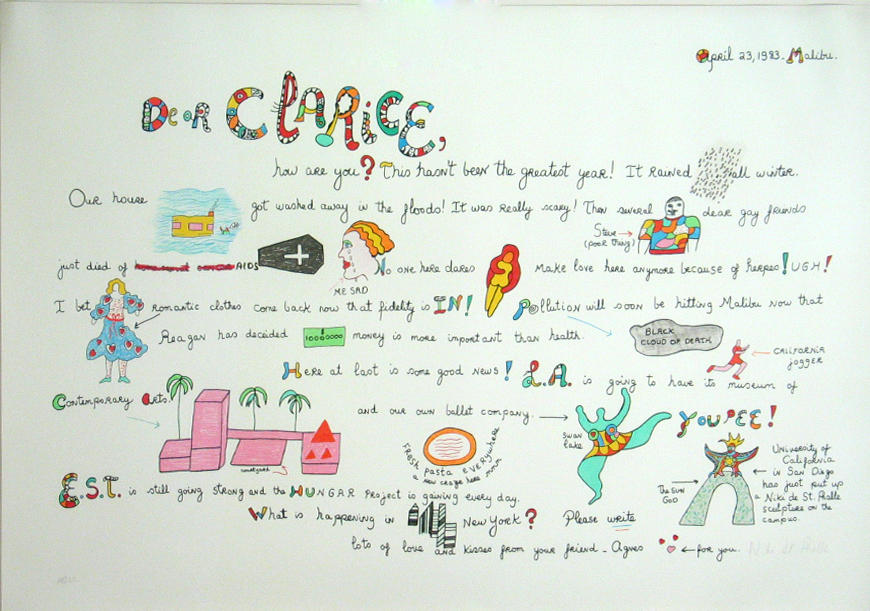 April 23, 1983. Malibu.
Dear CLARICE,
how are you? This hasn't been the greatest year! It rained all winter.
Our house got washed away in the floods! It was really scary! Then several dear gay friends
Steve → (poor thing)
just died of AIDS
ME SAD
No one here dares make love here anymore because of herpes! UGH!
I bet romantic clothes come back now that fidelity is IN! Pollution will soon be hitting Malibu now that
Reagan has decided money is more important than health.
BLACK CLOUD OF DEATH
CALIFORNIA jogger
Here at last is some good news! L.A. is going to have its museum of
Contemporary Arts. and our own ballet company. → YOUPEE!
swan lake
FRESH pasta EVERYwhere
a new craze here mmm
The SUN GOD →
← University of California in San Diego has just put up a Niki de St. Phalle sculpture on the campus.
E.S.T. is still going strong and the HUNGAR project is gaining every day.
What is happening in New York? Please write
lots of love and kisses from your friend - Agnes ← for you. Niki de St. Phalle